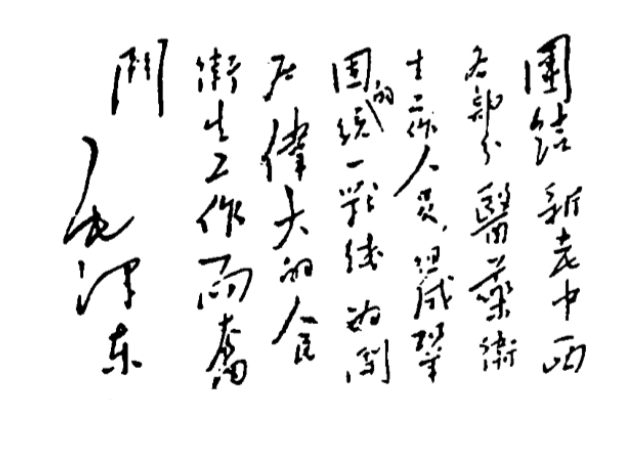 團結新老中西
各部分醫藥衛
生工作人员,组成鞏
固的统一戰线为開
展偉大的人民
衛生工作而奮
鬥
毛泽东